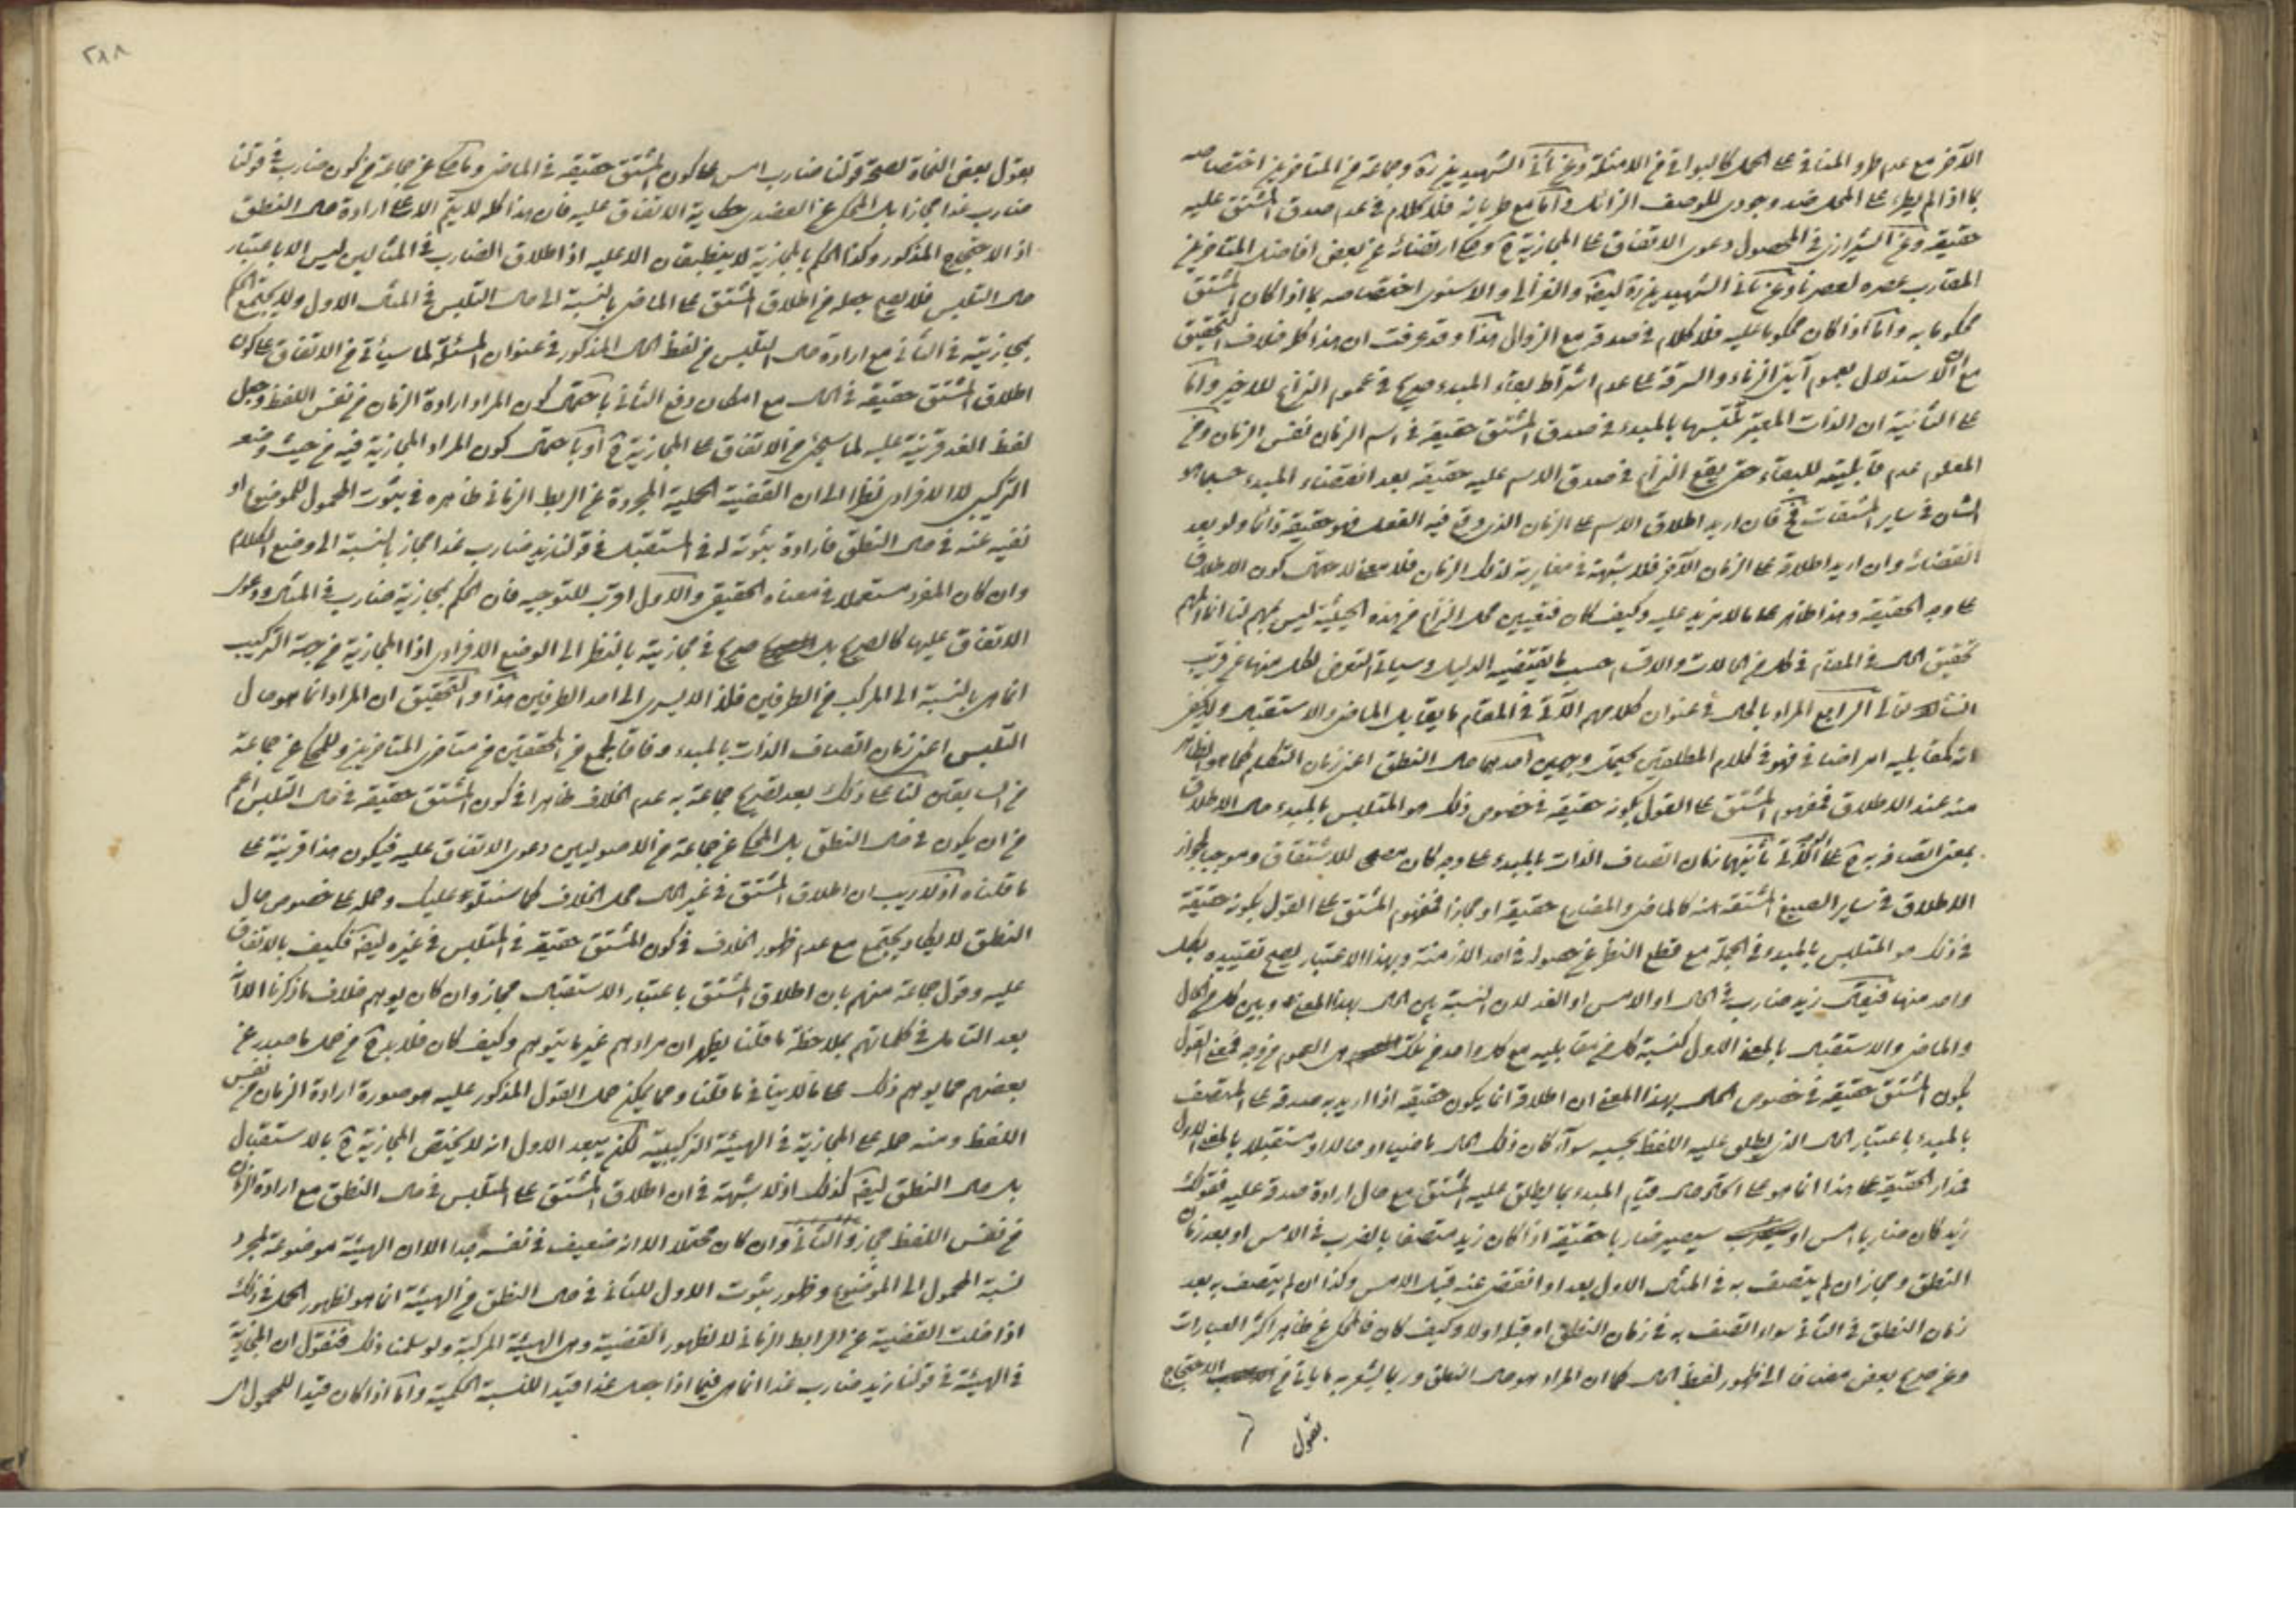 الآخر مع عدم طرو المنافي على المحل كالبواقي من الامثلة وعن ثاني الشهيدين ره وجماعة من المتاخرين اختصاصه
بما اذا لم يطرء على المحل ضد وجودي للوصف الزائل واما مع طريانه فلا كلام في عدم صدق المشتق عليه
حقيقة وعن الشيرازي في المحصول دعوى الاتفاق على المجازية ح وحكى ارتضائه عن بعض افاضل المتاخرين
المقارب عصره لعصرنا وعن ثاني الشهيدين ره ايضا والغزالي والاسنوى اختصاصه بما اذا كان المشتق
محكوما به واما اذا كان محكوما عليه فلا كلام في صدقه مع الزوال هذا وقد عرفت ان هذا كله خلاف التحقيق
مع ان الاستدلال بعموم آيتي الزناء والسرقة على عدم اشتراط بقاء المبدء صريح في عموم النزاع للاخير واما
على الثانية ان الذات المعتبر تلبسها بالمبدء في صدق المشتق حقيقة في اسم الزمان نفس الزمان ومن
المعلوم عدم قابليته للبقاء حتى يقع النزاع في صدق الاسم عليه حقيقة بعد انقضاء المبدء حسبما هو
الشان في ساير المشتقات فح فان اريد اطلاق الاسم على الزمان الذي وقع فيه الفعل فهو حقيقة دائما ولو بعد
انقضائه وان اريد اطلاقه على الزمان الآخر فلا شبهة في مغايرته لذلك الزمان فلا معنى لاحتمال كون الاطلاق
على وجه الحقيقة وهذا ظاهر على ما لا مزيد عليه وكيف كان فتعيين محل النزاع من هذه الحيثية ليس بمهم لنا انما المهم
تحقيق الحال في المقام في كل من الحالات والاقسام حسب ما يقتضيه الدليل وسياتي التعرض لكل منها عن قريب
انشاء الله تعالى الرابع المراد بالحال في عنوان كلامهم الآتي في المقام ما يقابل الماضي والاستقبال ولكن
انه كمقابليه امر اضافي فهو في كلام المطلقين يحتمل وجهين احدهما حال النطق اعني زمان التكلم كما هو الظاهر
منه عند الاطلاق فمفهوم المشتق على القول بكونه حقيقة في خصوص ذلك هو المتلبس بالمبدء حال الاطلاق
بمعنى اتصافه به ح ثانيهما زمان اتصاف الذات بالمبدء على وجه كان مصححا للاشتقاق وموجبا لجواز
الاطلاق في ساير الصيغ المشتقة منه كالماضي والمضارع حقيقة او مجازا فمفهوم المشتق على القول بكونه حقيقة
في ذلك هو المتلبس بالمبدء في الجملة مع قطع النظر عن حصوله في احد الازمنة وبهذا الاعتبار يصح تقييده بكل
واحد منها فيقال زيد ضارب في الحال او الامس او الغد لان النسبة بين الحال بهذا المعنى وبين كل من الحال
والماضي والاستقبال بالمعنى الاول كنسبة كل من مقابليه مع كل واحد من تلك هي العموم من وجه فمعنى القول
بكون المشتق حقيقة في خصوص الحال بهذا المعنى ان اطلاقه انما يكون حقيقة اذا اريد به صدقه على المتصف
بالمبدء باعتبار الحال الذي يطلق عليه اللفظ بحسبه سوآء كان ذلك الحال ماضيا او حالا او مستقبلا بالمعنى الاول
فمدار الحقيقة على هذا انما هو على اتحاد حال قيام المبدء بما يطلق عليه المشتق مع حال ارادة صدقه عليه فقولك
زيد كان ضاربا امس او سيصير ضاربا حقيقة اذا كان زيد متصفا بالضرب في الامس او بعد زمان
النطق ومجاز ان لم يتصف به في المثال الاول بعد او انقضى عنه قبل الامس وكذا ان لم يتصف به بعد
زمان النطق في الثاني سواء اتصف به في زمان النطق او قبله او لا وكيف كان فالمحكي عن ظاهر اكثر العبارات
وعن صريح بعض مضافا الى ظهور لفظ الحال كما ان المراد هو حال النطق وربما يشعر به ما ياتي من الاحتجاج
بقول
٢٨٨
بقول بعض النحاة لصحة قولنا ضارب امس على كون المشتق حقيقة في الماضي وما حكى عن جماعة من كون ضارب في قولنا
ضارب غدا مجازا بل المحكي عن العضدي حكاية الاتفاق عليه فان هذا كله لا يتم الا على ارادة حال النطق
اذ الاحتجاج المذكور وكذا الحكم بالمجازية لا ينطبقان الا عليه اذ اطلاق الضارب في المثالين ليس الا باعتبار
حال التلبس فلا يصح جعله من اطلاق المشتق على الماضي بالنسبة الى حال التلبس في المثال الاول ولا يجتمع الحكم
بمجازيته في الثاني مع ارادة حال التلبس من لفظ الحال المذكور في عنوان المسئلة لما سيأتي من الاتفاق على كون
اطلاق المشتق حقيقة في الحال مع امكان دفع الثاني باحتمال كون المراد ارادة الزمان من نفس اللفظ وجعل
لفظ الغد قرينة عليه لما سيجئ من الاتفاق على المجازية ح او باحتمال كون المراد المجازية فيه من حيث وضعه
التركيبي لا الافرادي نظرا الى ان القضية الحملية المجردة عن الربط الزماني ظاهره في ثبوت المحمول للموضوع او
نفيه عنه في حال النطق فارادة ثبوته له في المستقبل في قولنا زيد ضارب غدا مجاز بالنسبة الى وضع الكلام
وان كان المفرد مستعملا في معناه الحقيقي والاول اقرب للتوجيه فان الحكم بمجازية ضارب في المثال ودعوى
الاتفاق عليها كالصريح بل صريح في مجازيته بالنظر الى الوضع الافرادي اذ المجازية من جهة التركيب
انما هي بالنسبة الى المركب من الطرفين فلذا لا يسرى الى احد الطرفين هذا والتحقيق ان المراد انما هو حال
التلبس اعني زمان اتصاف الذات بالمبدء وفاقا لجمع من المحققين من متاخري المتاخرين وللمحكي عن جماعة
من السابقين لنا على ذلك بعد تصريح جماعة به عدم الخلاف ظاهرا في كون المشتق حقيقة في حال التلبس اعم
من ان يكون في حال النطق بل المحكي عن جماعة من الاصوليين دعوى الاتفاق عليه فيكون هذا قرينة على
ما قلناه اذ لا ريب ان اطلاق المشتق في غير الحال محل الخلاف كما سنتلوه عليك وحمله على خصوص حال
النطق لا يكاد يجتمع مع عدم ظهور الخلاف في كون المشتق حقيقة في المتلبس في غيره ايضا فكيف بالاتفاق
عليه وقول جماعة منهم بان اطلاق المشتق باعتبار الاستقبال مجاز وان كان يوهم خلاف ما ذكرنا الا انه
بعد التامل في كلماتهم بملاحظة ما قلنا يظهر ان مرادهم غير ما يتوهم وكيف كان فلا بد ح من حمل ما صدر عن
بعضهم مما يوهم ذلك على ما لا ينافي ما قلنا ومما يمكن حمل القول المذكور عليه هو صورة ارادة الزمان من نفس
اللفظ ومنه حمله على المجازية في الهيئة التركيبية لكن يبعد الاول انه لا يختص المجازية ح بالاستقبال
بل حال النطق ايضا كذلك اذ لا شبهة في ان اطلاق المشتق على المتلبس في حال النطق مع ارادة الزمان
من نفس اللفظ مجاز والثاني وان كان محتملا الا انه ضعيف في نفسه جدا لان الهيئة موضوعة لمجرد
نسبة المحمول الى الموضوع وظهور ثبوت الاول للثاني في حال النطق من الهيئة انما هو لظهور الحال في ذلك
اذا خلت القضية عن الرابط الزماني لا لظهور القضية وهي الهيئة المركبة ولو سلمنا ذلك فنقول ان المجازية
في الهيئة في قولنا زيد ضارب غدا انما هي فيما اذا جعل غدا قيدا للنسبة الحكمية واما اذا كان قيدا للمحمول اى